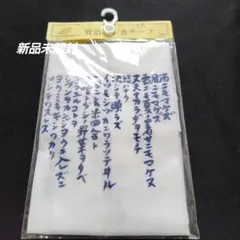 新品未開封
雨ニモマケズ
風ニモマケズ
雪ニモ夏ノ暑サニモマケヌ
丈夫ナカラダヲモチ
慾ハナク
決シテ瞋ラズ
イツモシヅカニワラッテヰル
一日ニ玄米四合ト
味噌ト少シノ野菜ヲタベ
アラユルコトヲ
ジブンヲカンジョウニ入レズニ
ヨクミキキシワカリ
ソシテワスレズ